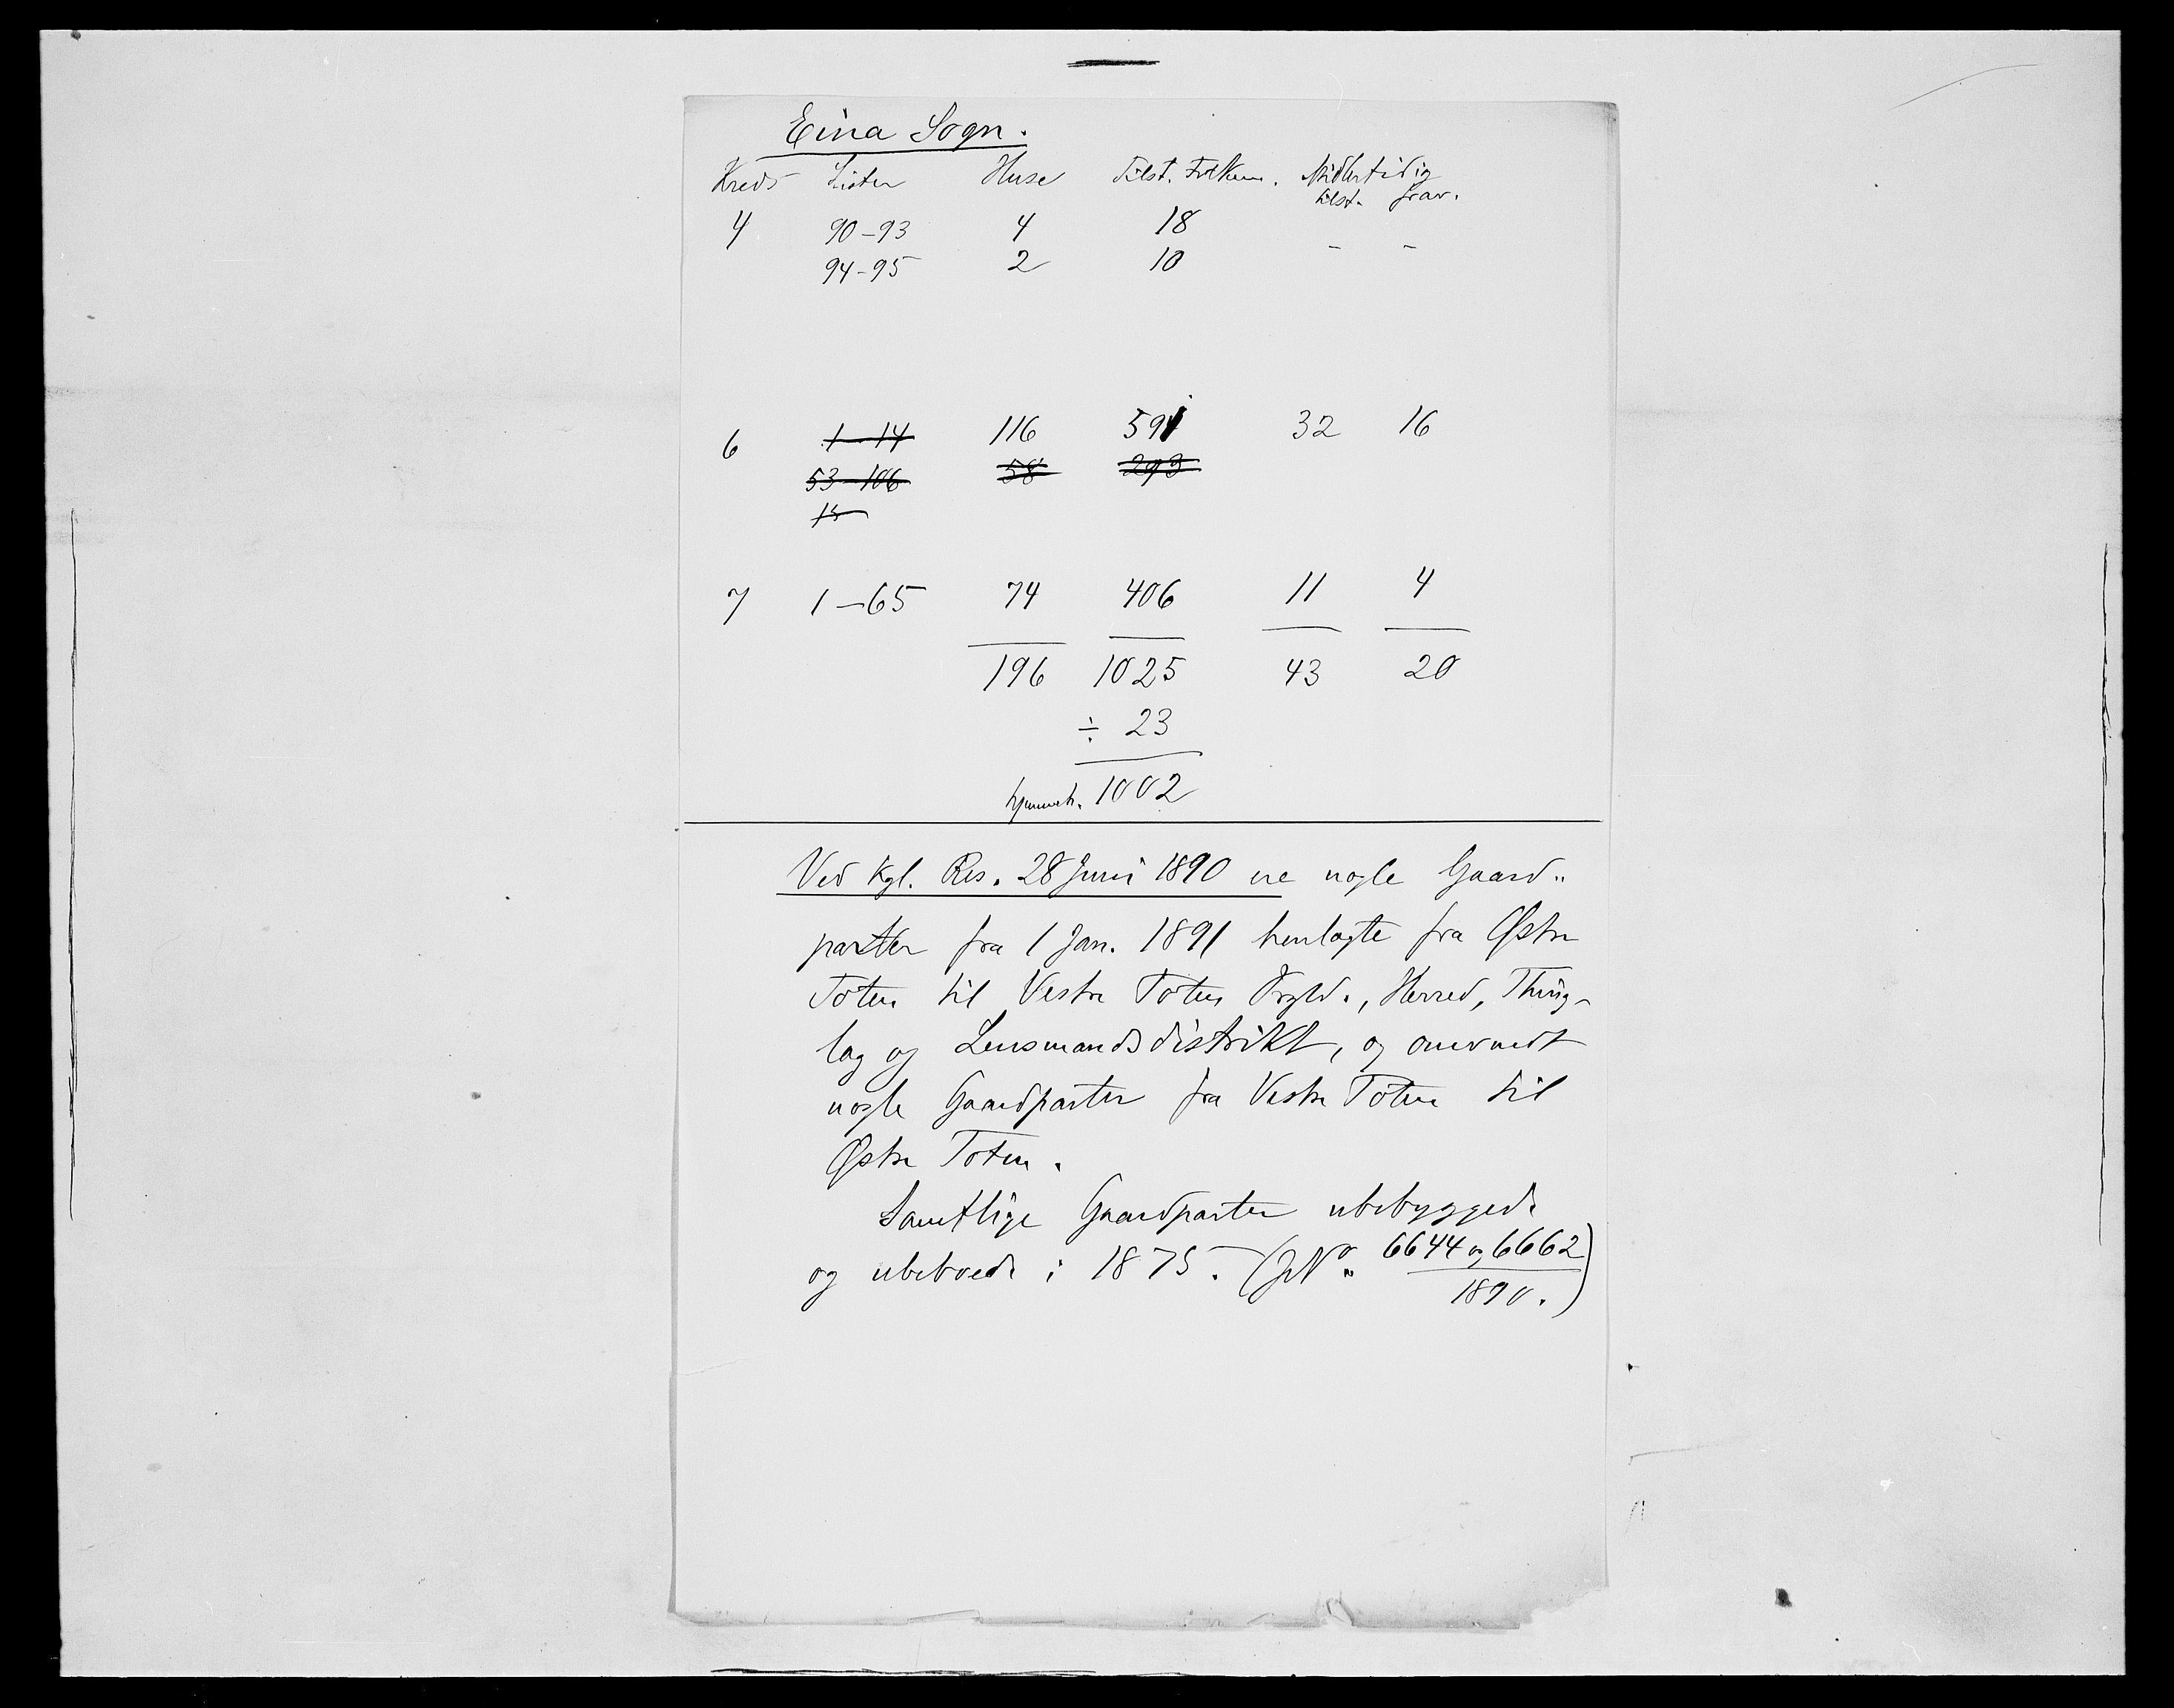 Eina Sogn.
Kreds Lister Huse Tilst. Folkem. Midlertidig
tilst. frav.
4 90-93 4 18
94-95 2 10 - -
6 1-14 116 591 32 16
53-106 58 293
15
7 1-65 74 406 11 4
196 1025 43 20
÷ 23
hjemmeh. 1002
Ved Kgl. Res. 28 Juni 1890 ere nogle Gaard„
parter fra 1 Jan. 1891 henlagte fra Østre
Toten til Vestre Toten Prgld., Herred, Thing-
lag og Lensmandsdistrikt, og omvendt
nogle Gaardparter fra Vestre Toten til
Østre Toten.
Samtlige Gaardparter ubebyggede
og ubeboede i 1875. (JNo. 6644 og 6662
1890.)